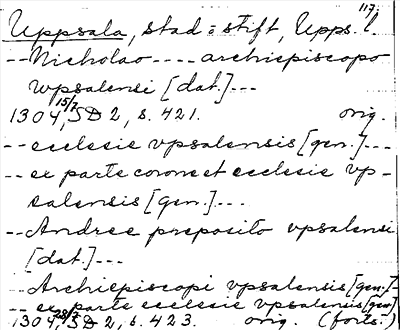 117.
Uppsala, stad = stift, Upps. l.
-- Nicholao ---- archiepiscopo
vpsalensi [dat.] ---
1304 15/7, SD 2, s. 421. orig.
-- ecclesie vpsalensis [gen.] ---
-- ex parte corone et ecclesie vp-
salensis [gen.] ---
-- Andree preposito vpsalensi
[dat.] ---
-- Archiepiscopi vpsalensis [gen.] -
-- ex parte ecclesie vpsalensis [gen]
1304 28/7, SD 2, s. 423. orig. (forts.)